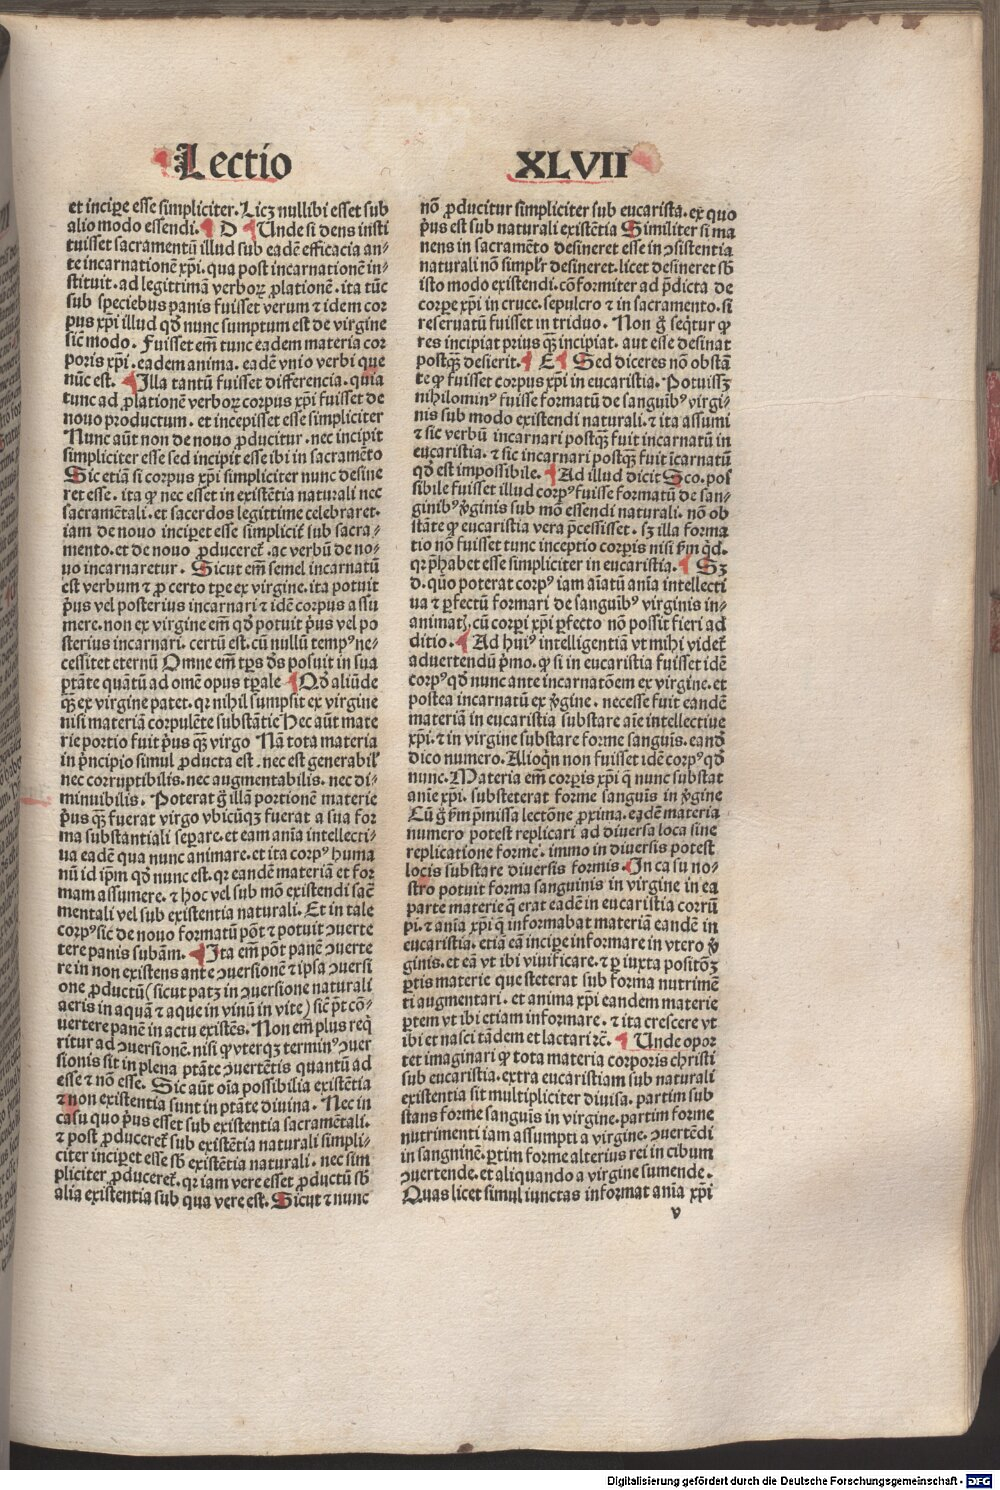 Lectio XLVII
et incipe esse simpliciter. Licꝫ nullibi esset sub
alio modo essendi. D Unde si deus insti
tuisset sacramentū illud sub eadē efficacia an-
te incarnationē xp̄i. qua post incarnationē in-
stituit. ad legittimā verboꝝ ꝓlationē. ita tūc
sub speciebus panis fuisset verum ⁊ idem cor
pus xp̄i illud qd̄ nunc sumptum est de virgine
sic modo. Fuisset em̄ tunc eadem materia cor
poris xp̄i. eadem anima. eadē vnio verbi que
nūc est. Illa tantū fuisset differencia. quia
tunc ad ꝓlationē verboꝝ corpus xp̄i fuisset de
nouo productum. et incepisset esse simpliciter
Nunc aūt non de nouo ꝓducitur. nec incipit
simpliciter esse sed incipit esse ibi in sacramēto
Sic etiā si corpus xp̄i simpliciter nunc desine
ret esse. ita ꝙ nec esset in existētia naturali nec
sacramētali. et sacerdos legittime celebraret.
iam de nouo inciperet esse simplicit̄ sub sacra-
mento. et de nouo ꝓduceret̄. ac verbū de no-
uo incarnaretur. Sicut em̄ semel incarnatū
est verbum ⁊ ꝓ certo tp̄e ex virgine. ita potuit
p̄us vel posterius incarnari ⁊ idē corpus assu
mere. non ex virgine em̄ qd̄ potuit p̄us vel po
sterius incarnari. certū est. cū nullū tempꝰ ne-
cessitet eternū Omne em̄ tp̄s d̄s posuit in sua
ptāte quātū ad omē opus tp̄ale Qd̄ aliūde
qꝫ ex virgine patet. qꝛ nihil sumpsit ex virgine
nisi materiā corpulēte substātie Hec aūt mate
rie portio fuit p̄us qꝫ virgo Nā tota materia
in p̄ncipio simul ꝓducta est. nec est generabil'
nec corruptibilis. nec augmentabilis. nec di-
minuibilis. Poterat g̊ illā portionē materie
p̄us qꝫ fuerat virgo vbicūqꝫ fuerat a sua for
ma substantiali separe. et eam aīa intellecti-
ua eadē qua nunc animare. et ita corpꝰ huma
nū id ip̄m qd̄ nunc est. qꝛ eandē materiā et for
mam assumere. ⁊ hoc vel sub mō existendi sac̄
mentali vel sub existentia naturali. Et in tale
corpꝰ sic de nouo formatū pōt ⁊ potuit ↄuerte
tere panis subām. Ita em̄ pōt panē ↄuerte
re in non existens ante ↄuersionē ⁊ ipsa ↄuersi
one ꝓductū (sicut patꝫ in ↄuersione naturali
aeris in aquā ⁊ aque in vinū in vite) sic p̄t cō-
uertere panē in actu existēs. Non em̄ plus req̄
ritur ad ↄuersionē. nisi ꝙ vterqꝫ terminꝰ ↄuer
sionis sit in plena ptāte ↄuertētis quantū ad
esse ⁊ nō esse. Sic aūt oīa possibilia existētia
⁊ non existentia sunt in ptāte diuina. Nec in
casu quo p̄us esset sub existentia sacramētali.
⁊ post ꝓduceret̄ sub existētia naturali simpli-
citer inciperet esse sb̄ existētia naturali. nec sim
pliciter ꝓduceret̄. qꝛ iam vere esset ꝓductū sb̄
alia existentia sub qua vere est. Sicut ⁊ nunc
nō ꝓducitur simpliciter sub eucarista. ex quo
p̄us est sub naturali existētia Similiter si ma
nens in sacramēto desineret esse in ↄsistentia
naturali nō simplr̄ desineret. licet desineret sb̄
isto modo existendi. cōformiter ad p̄dicta de
corpe xp̄i in cruce. sepulcro ⁊ in sacramento. si
reseruatū fuisset in triduo. Non g̊ seq̄tur ꝙ
res incipiat prius qꝫ incipiat. aut esse desinat
postqꝫ desierit. E Sed diceres nō obstā
te ꝙ fuisset corpus xp̄i in eucaristia. Potuissꝫ
nihilominꝰ fuisse formatū de sanguibꝰ virgi-
nis sub modo existendi naturali. ⁊ ita assumi
⁊ sic verbū incarnari postqꝫ fuit incarnatū in
eucaristia. ⁊ sic incarnari postqꝫ fuit īcarnatū
qd̄ est impossibile. Ad illud dicit Sco. pos
sibile fuisset illud corpꝰ fuisse formatū de san-
guibꝰ v̄ginis sub mō essendi naturali. nō ob
stāte ꝙ eucaristia vera p̄cessisset. sꝫ illa forma
tio nō fuisset tunc inceptio corpis nisi ẜm qd̄.
qꝛ p̄habet esse simpliciter in eucaristia. Sꝫ
d. quō poterat corpꝰ iam aīatū aīa intellecti
ua ⁊ ꝑfectū formari de sanguibꝰ virginis in-
animatꝭ. cū corpi xp̄i ꝑfecto nō possit fieri ad
ditio. Ad huiꝰ intelligentiā vt mihi videt̄
aduertendū p̄mo. ꝙ si in eucaristia fuisset idē
corpꝰ qd̄ nunc ante incarnatōem ex virgine. et
postea incarnatū ex v̄gine. necesse fuit eandē
materiā in eucaristia substare aīe intellectiue
xp̄i. ⁊ in virgine substare forme sanguis. eandē
dico numero. Alioqn̄ non fuisset idē corpꝰ qd̄
nunc. Materia em̄ corpis xp̄i q̄ nunc substat
anīe xp̄i. substeterat forme sanguis in v̄gine
Cū g̊ ẜm p̄missa lectōne ꝓxima. eadē materia
numero potest replicari ad diuersa loca sine
replicatione forme. immo in diuersis potest
locis substare diuersis formis. In casu no-
stro potuit forma sanguinis in virgine in ea
parte materie q̄ erat eadē in eucaristia corrū
pi. ⁊ anīa xp̄i q̄ informabat materiā eandē in
eucaristia. etiā eā incipe informare in vtero v̄
ginis. et eā vt ibi viuificare. ⁊ ꝑ iuxta positōꝫ
ꝑtis materie que steterat sub forma nutrimē
ti augmentari. et anima xp̄i eandem materie
ꝑtem vt ibi etiam informare. ⁊ ita crescere vt
ibi et nasci tādem et lactari ⁊c̄. Unde opor
tet imaginari ꝙ tota materia corporis christi
sub eucaristia. extra eucaristiam sub naturali
existentia sit multipliciter diuisa. partim sub
stans forme sanguis in virgine. partim forme
nutrimenti iam assumpti a virgine. ↄuertēdi
in sanguinē. ꝑtim forme alterius rei in cibum
ↄuertende. et aliquando a virgine sumende.
Quas licet simul iunctas informat anīa xp̄i
v
Digitalisierung gefördert durch die Deutsche Forschungsgemeinschaft - DFG